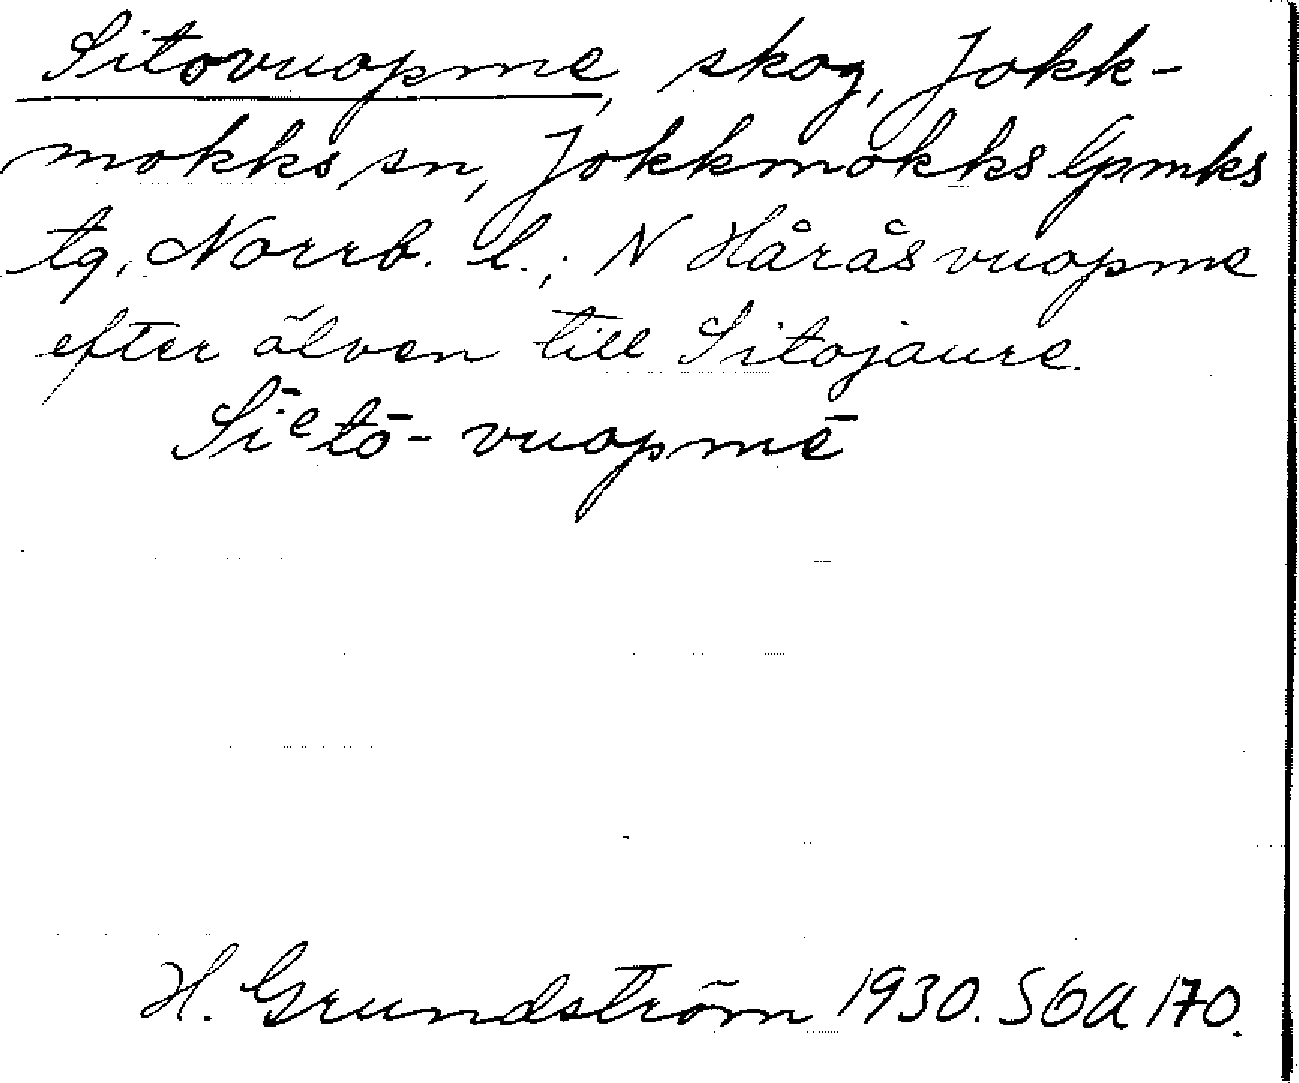 Sitovuopme, skog, Jokk-
mokks sn, Jokkmokks lpmks
tg, Norrb. l.; N Håråsvuopme
efter älven till Sitojaure.
Sīᵉtō- vuopmē
H. Grundström 1930. SOA 170.